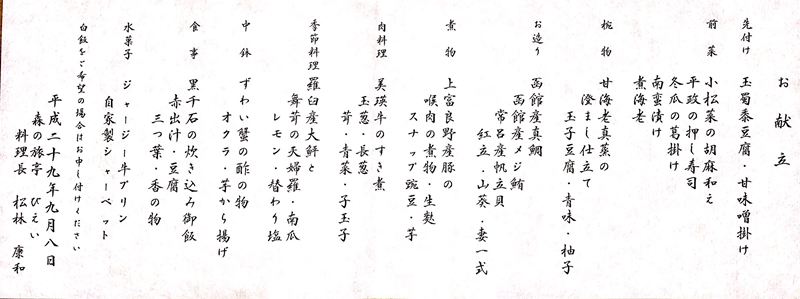 お献立
先付け 玉蜀黍豆腐・甘味噌掛け
前菜 小松菜の胡麻和え
平政の押し寿司
冬瓜の葛掛け
南蛮漬け
煮海老
椀物 甘海老真蒸の
澄まし仕立て
玉子豆腐・青味・柚子
お造り 函館産真鯛
函館産メジ鮪
常呂産帆立貝
紅立・山葵・妻一式
煮物 上富良野産豚の
喉肉の煮物・生麩
スナップ豌豆・芋
肉料理 美瑛牛のすき煮
玉葱・長葱
茸・青菜・子玉子
季節料理 羅臼産大鮃と
舞茸の天婦羅・南瓜
レモン・替わり塩
中鉢 ずわい蟹の酢の物
オクラ・芋から揚げ
食事 黒千石の炊き込み御飯
赤出汁・豆腐
三つ葉・香の物
水菓子 ジャージー牛プリン
自家製シャーベット
白飯をご希望の場合はお申し付けください
平成二十九年九月八日
森の旅亭 びえい
料理長 松林 康和